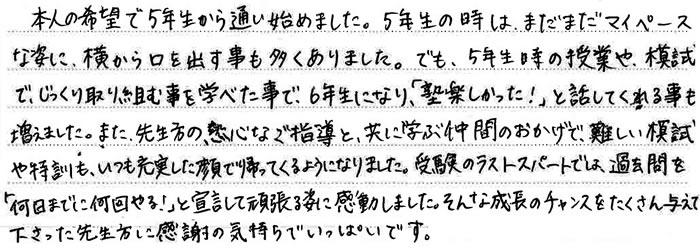 本人の希望で5年生から通い始めました。5年生の時は、まだまだマイペース
な姿に、横から口を出す事も多くありました。でも、5年生時の授業や、模試
で、じっくり取り組む事を学べた事で、6年生になり、「塾楽しかった！」と話してくれる事も
増えました。また、先生方の熱心なご指導と、共に学ぶ仲間のおかげで、難しい模試
や特訓も、いつも充実した顔で帰ってくるようになりました。受験のラストスパートでは、過去問を
「何日までに何回やる！」と宣言して頑張る姿に感動しました。そんな成長のチャンスをたくさん与えて
下さった先生方に感謝の気持ちでいっぱいです。